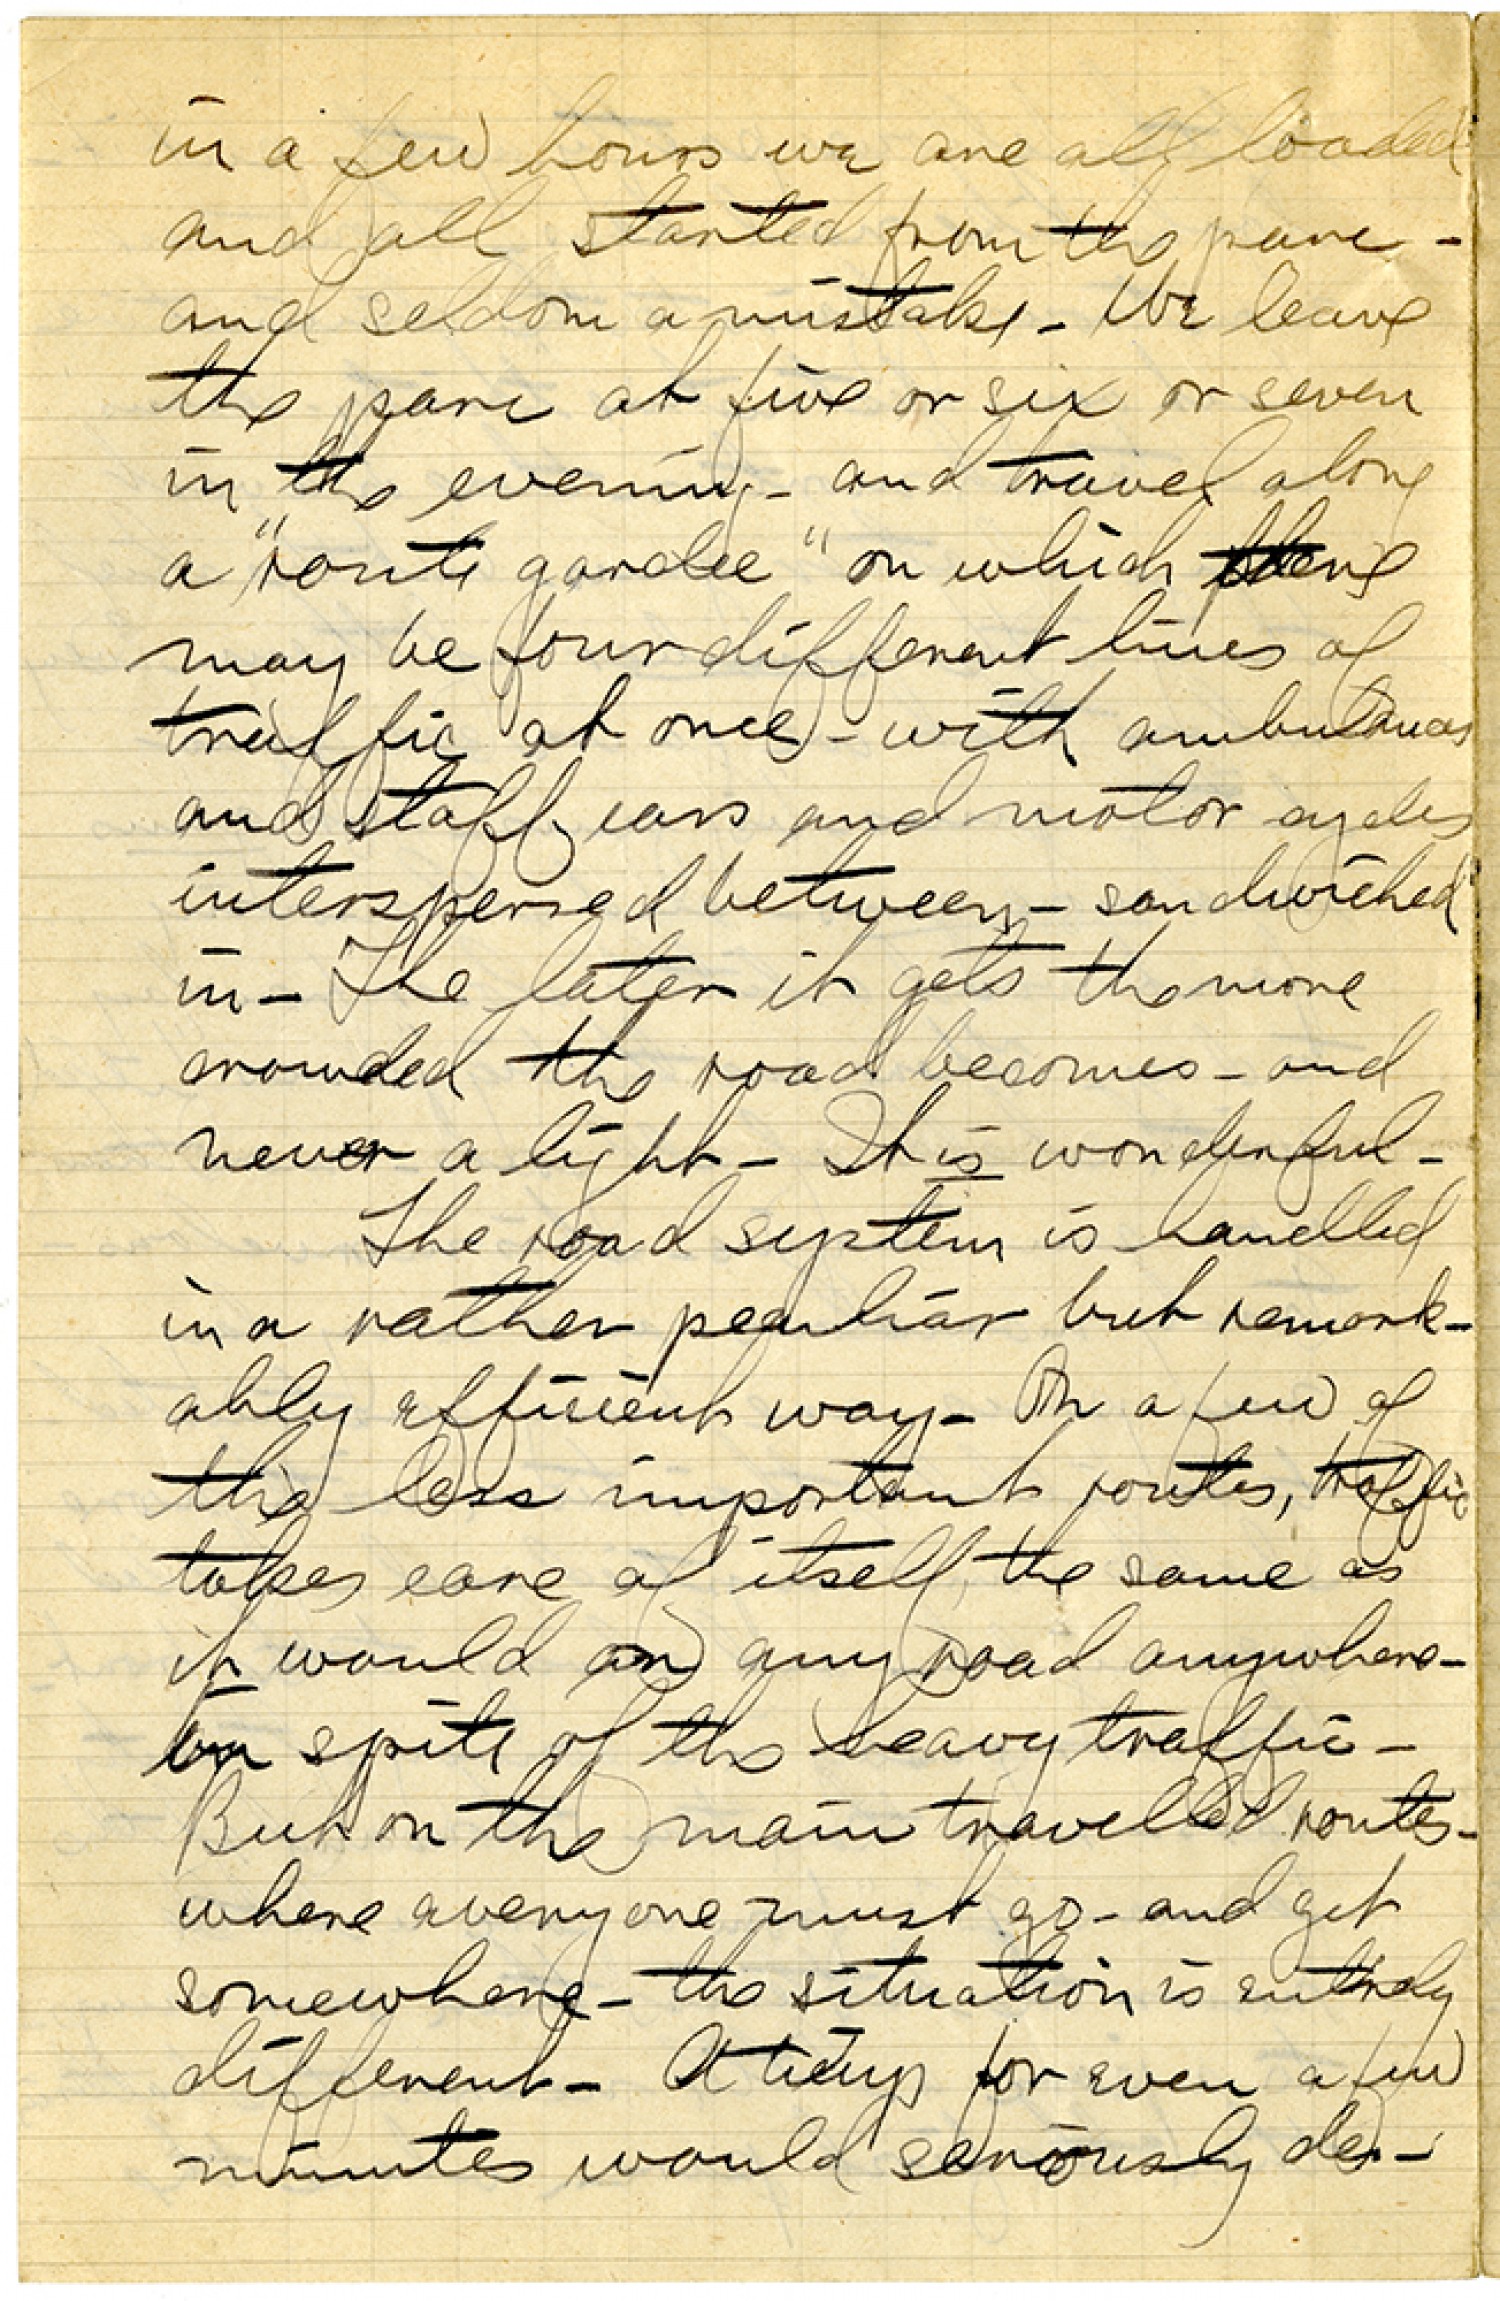 in a few hours we are all loaded
and all started from the parc -
and seldom a mistake - We leave
the parc at five or six or seven
in the evening - and travel along
a "route gardee" on which there
may be four different lines of
traffic at once - with ambulances
and staff cars and motor cycles
interspersed between - sandwiched
in - The later it gets the more
crowded the road becomes - and
never a light - It is wonderful -
The road system is handled
in a rather peculiar but remark-
ably efficient way - On a few of
the less important routes, traffic
takes care of itself, the same as
it would on any road anywhere -
in spite of the heavy traffic -
But on the main travelled routes -
where everyone must go - and get
somewhere - the situation is entirely
different - A tieup for even a few
minutes would seriously de-